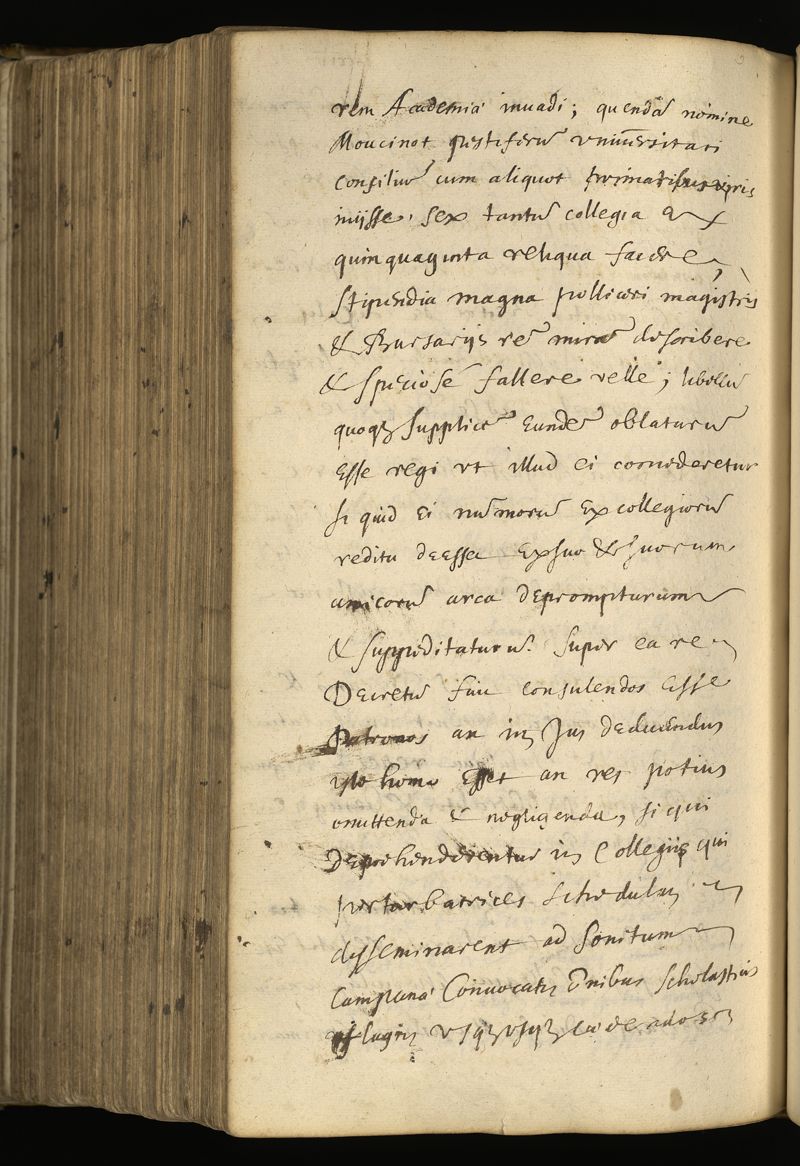 rem Academiā inuadi; quendā nomine
Moucinot pestiferū vniuersitati
consiliū cum aliquot primatibus viris
iniisse, sex tantū collegia ex
quinquaginta reliqua facere,
stipendia magna polliceri magistris
& Bursariis rē mirā describere
& speciose fallere velle; libellū
quoqꝫ supplicē eundē oblaturū
esse regi vt illud ei concederetur
si quid ei nummorū ex collegiorū
reditu deesset ex suo & suorum
amicorū arca deprompturum
& suppeditaturū. Super ea re
Decretū fuit consulendos esse
Patronos an in Jus deducendus
iste homo esset an res potius
omittenda & negligenda, si qui
Deprehenderentur in Collegiis qui
perturbatrices schedulas
disseminarent ad sonitum
Campanæ Conuocatis oībus scholasticis
plagis vsqꝫ vsqꝫ